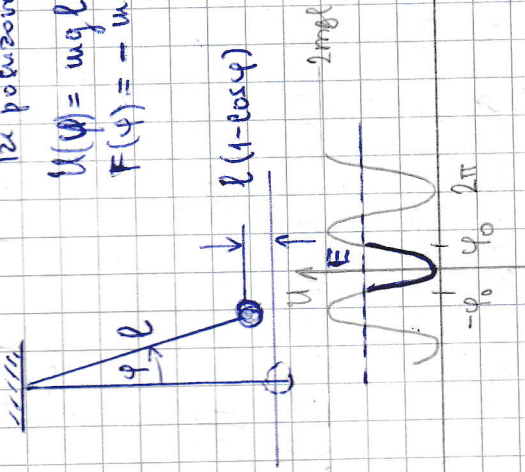 U(φ) = mgl
F(φ) = - m
l(1-cosφ)
φ
l
2mgl
U
E
-φ₀
φ₀
2π